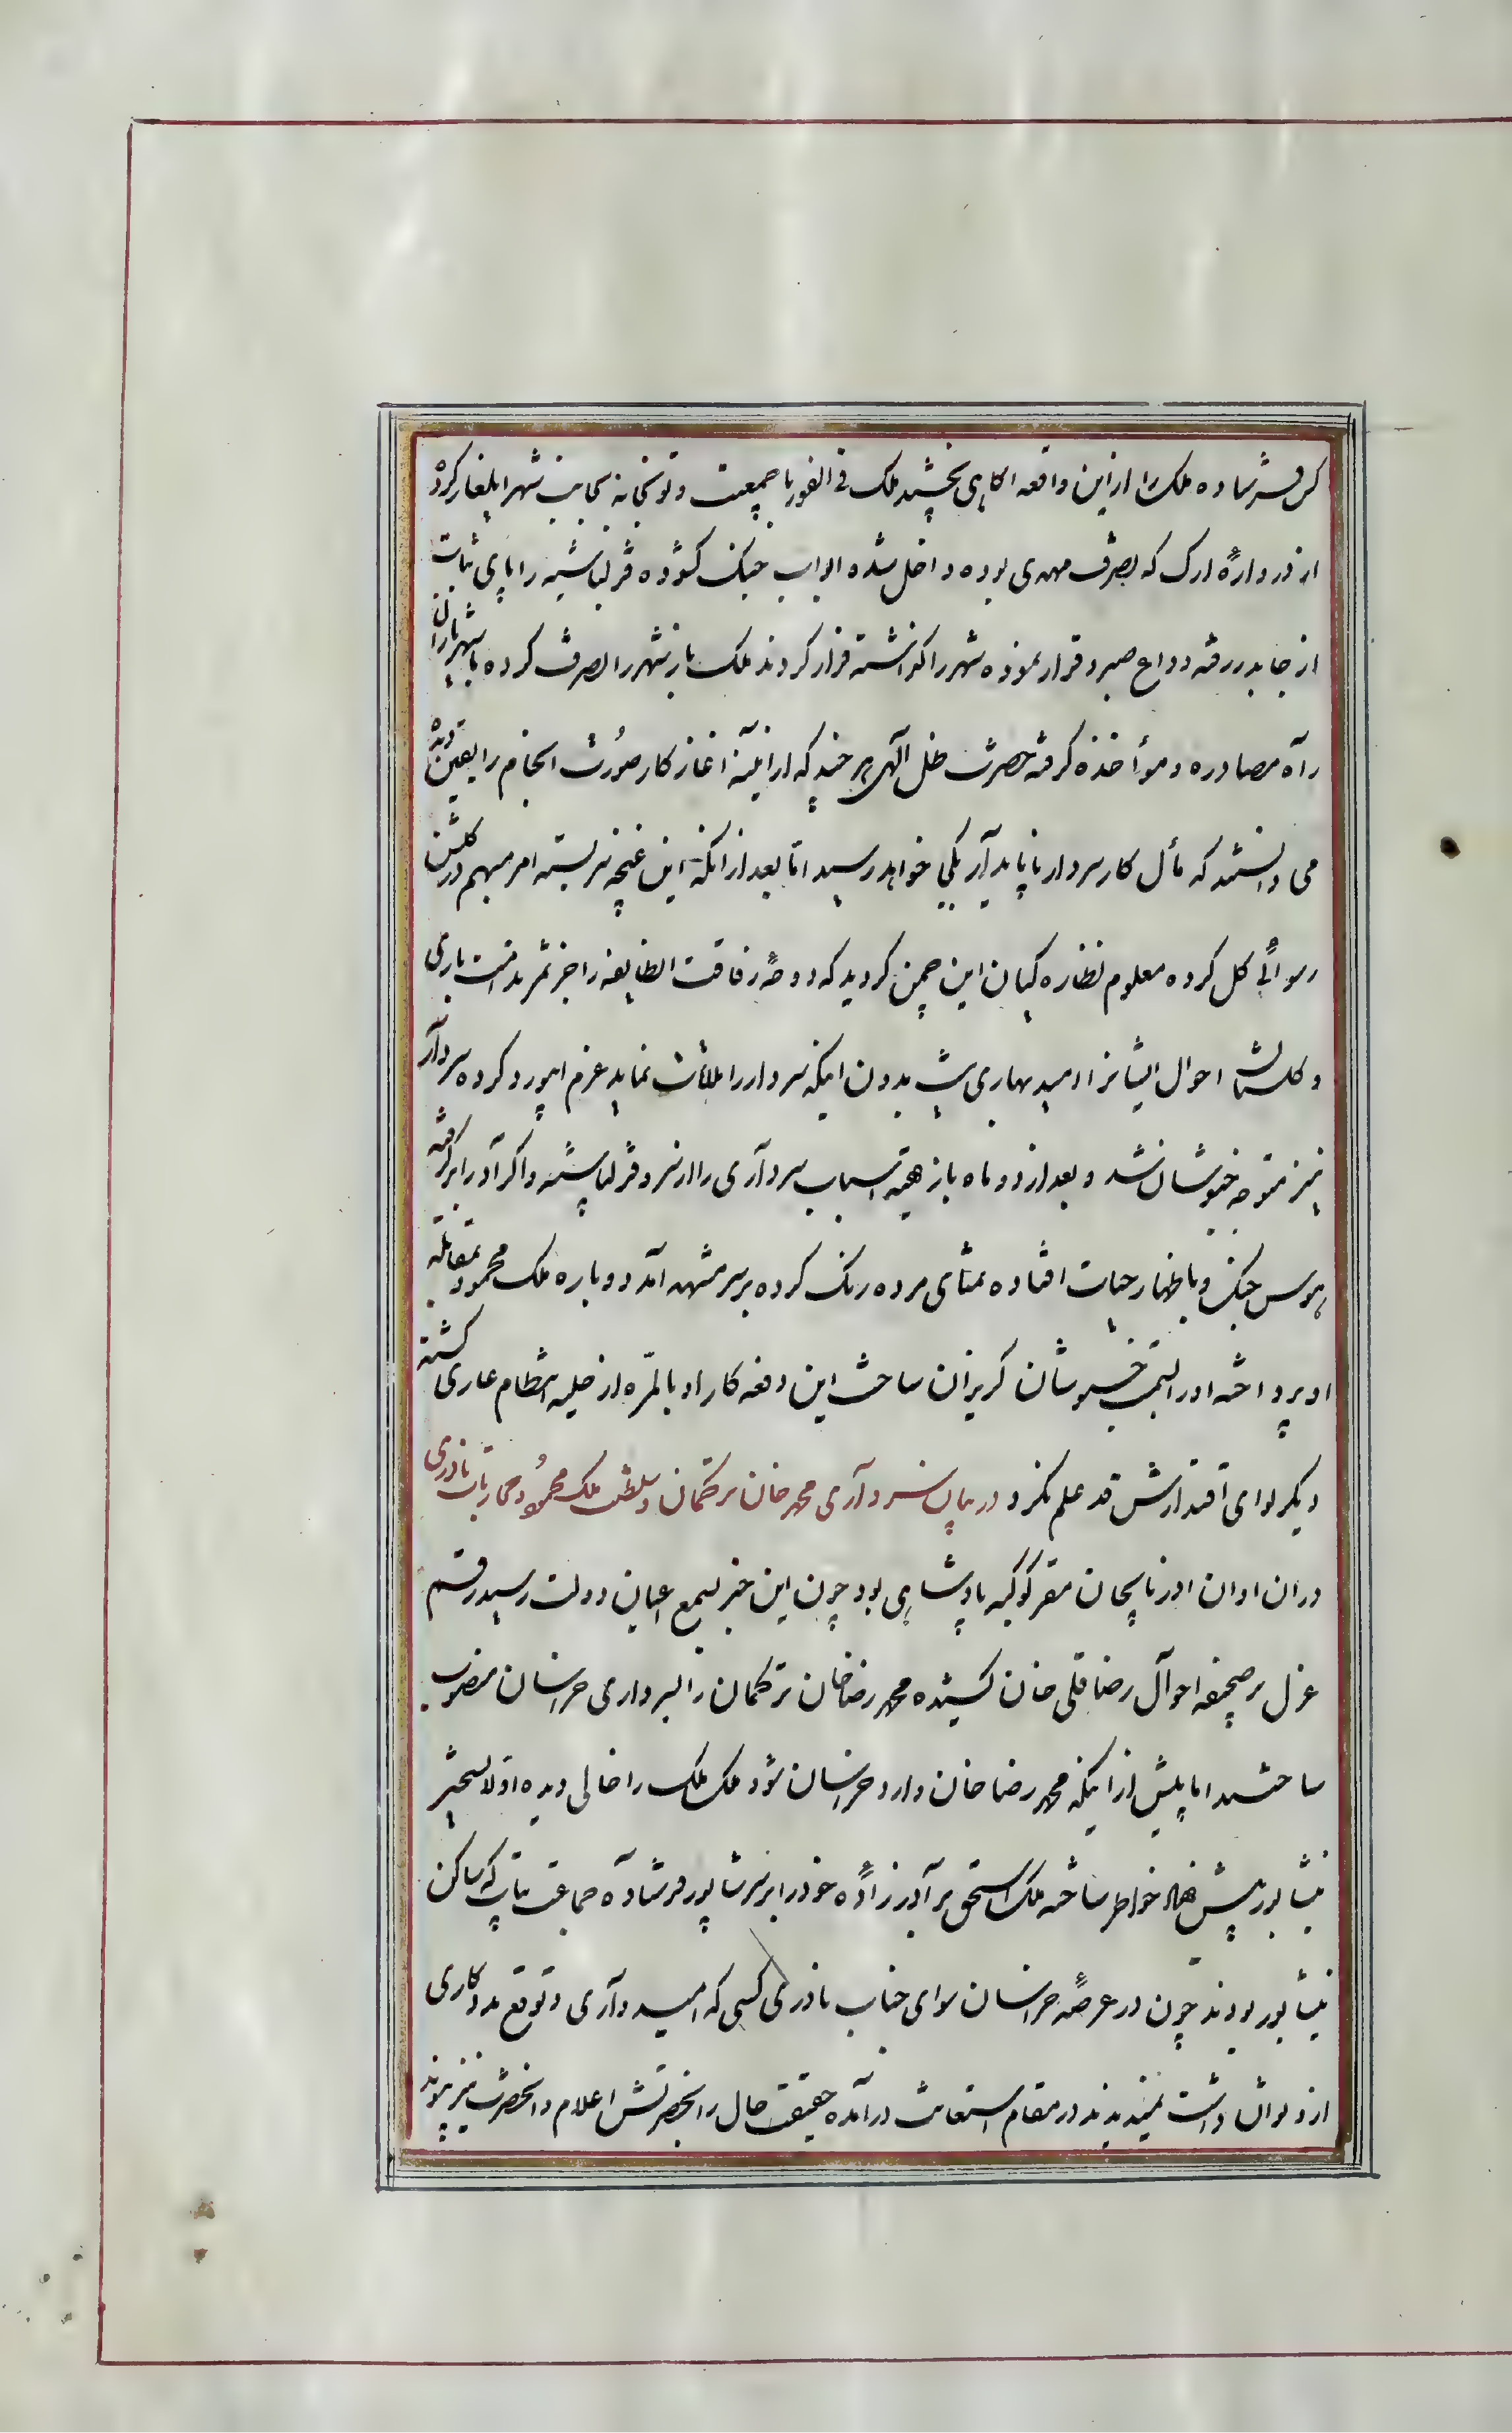 کس فرستاده ملک را ازین واقعه اکاهی بخشید ملک فی الفور با جمعیت و توبخانه بجانب شهر ایلغار کرده
از دروازهٔ ارک که بتصرف مهدی بوده داخل شده ابواب جنک کشوده قزلباشیه را پای ثبات
از جا بدر رفته وداع صبر و قرار نموده شهر را کذاشته فرار کردند ملک باز شهر را تصرف کرده با شهریاران
راه مصادره و مؤاخذه کرفته حضرت ظل الهی هر چند که از اینه آغاز کار صورت انجام را بعین دیده
می دانستند که مأل کار سردار ناپایدار بکی خواهد رسید اما بعد از انکه این غنچه سربسته امر مبهم در کلشن
رسوائی کل کرده معلوم نظاره کیان این چمن کردید که دوحهٔ رفاقت انطایفه را جز ثمر ندامت باری
و کلستان احوال ایشانرا امید بهاری نیست بدون اینکه سردار را ملاقات نماید عزم ابیورد کرده سردار
نیز متوجه خبوشان شد و بعد از دو ماه باز تهیه اسباب سرداری را از سر و قزلباشیه و اکراد را برکرفته
بهوس جنک و باظهار حیات افتاده تمنای مرده رنک کرده بر سر مشهد آمد دوباره ملک محمود بمقابله
او پرداخته او را بسمت خبوشان کریزان ساخت این دفعه کار او بالمره از حلیه انتظام عاری کشته
دیکر لوای اقتدارش قد علم نکرد در بیان سرداری محمد خان ترکمان و سلطنت ملک محمود و محاربات نادری
دران اوان اذربایجان مقر کوکبه پادشاهی بود چون این خبر بسمع اعیان دولت رسید رقم
عزل بر صحیفه احوال رضا قلی خان کشیده محمد رضا خان ترکمان را بسرداری خراسان منصوب
ساختند اما پیش از اینکه محمد رضا خان وارد خراسان شود ملک ملک را خالی دیده اولا تسخیر
نیشابور پیش نهاد خواطر ساخته ملک اسحق برادر زاده خود را بر سر نیشابور فرستاده جماعت بیات که ساکن
نیشابور بودند چون در عرصهٔ خراسان سوای جناب نادری کسی که امیدواری و توقع مددکاری
از و توان داشت نمیدیدند در مقام استعانت درآمده حقیقت حال را بحضرتش اعلام و انحضرت نیز